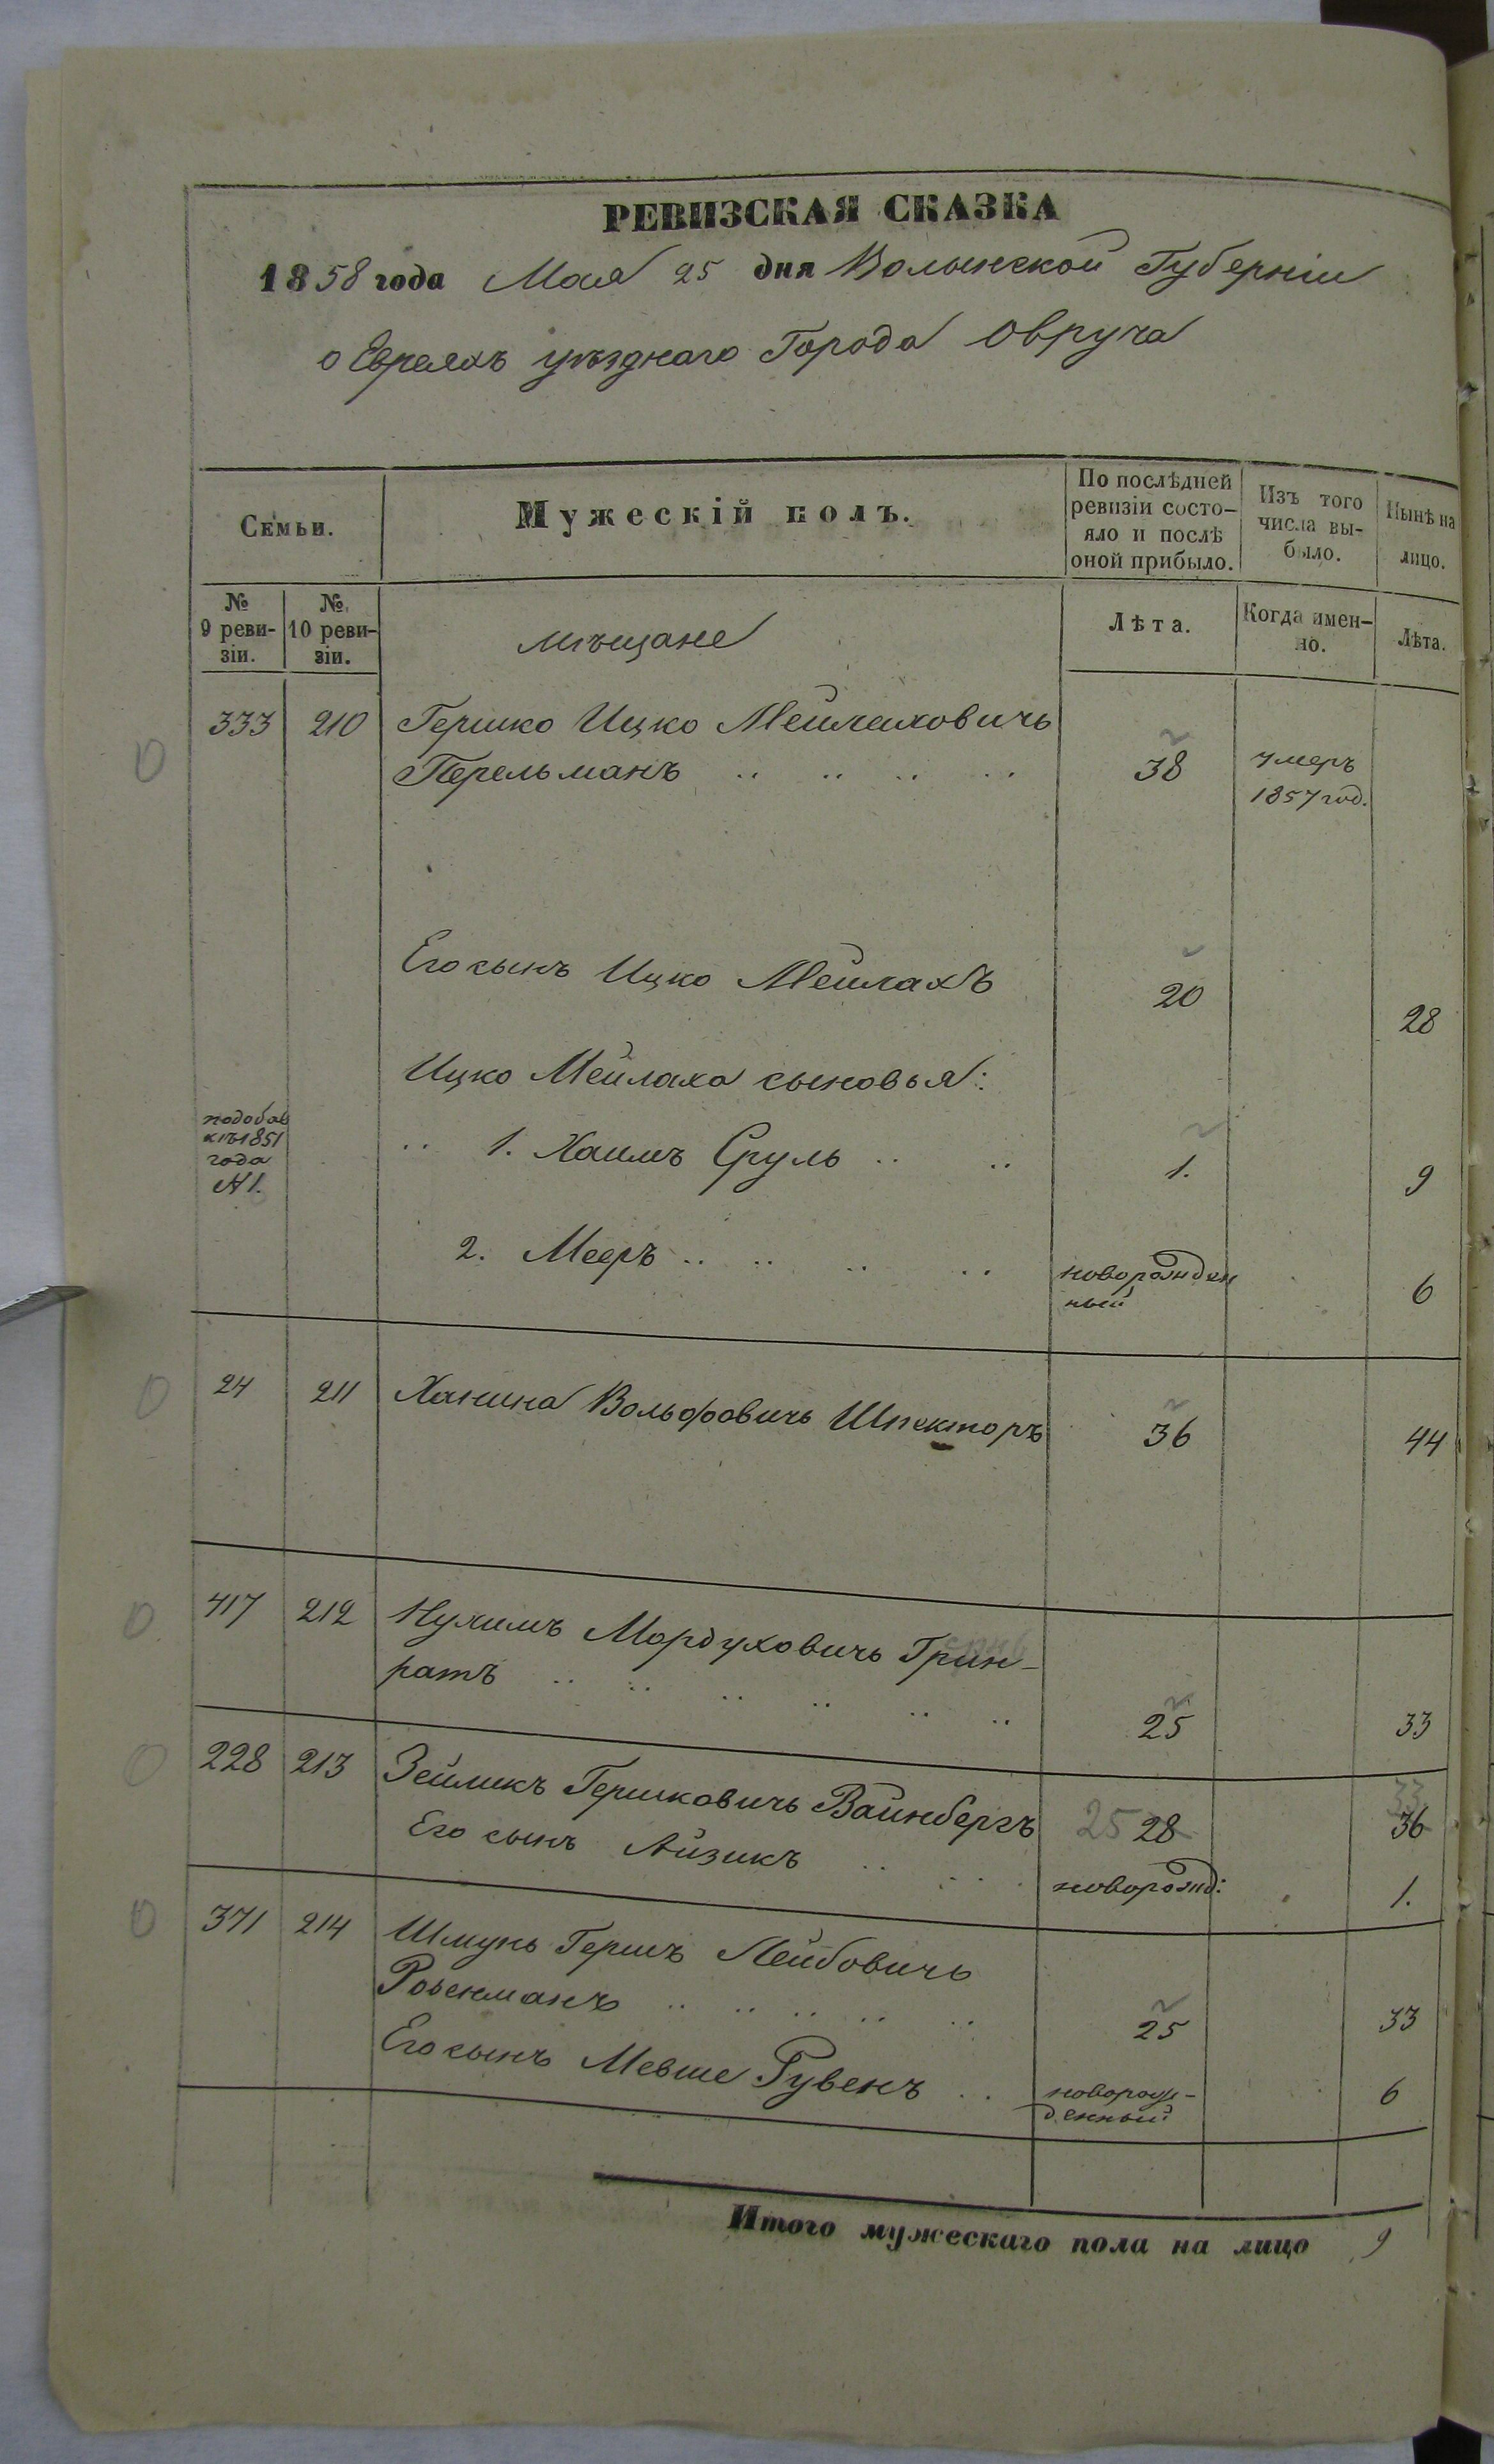 РЕВИЗСКАЯ СКАЗКА
1858 года Мая 25 дня Волынской Губерніи
о Евреяхъ уѣзднаго Города Овруча
Семьи.
Мужескій полъ.
По послѣдней ревизіи состо-
яло и послѣ оной прибыло.
Изъ того числа вы-
было.
Нынѣ на лицо.
№ 9 реви-
зіи.
№ 10 реви-
зіи.
мѣщане
Лѣта.
Когда имен-
но.
Лѣта.
333 210 Гершко Ицко Мейлаховичь
Перельманъ 38 умеръ
1857 год.
Его сынъ Ицко Мейлахъ 20 28
Ицко Мейлаха сыновья:
подобав
къ 1851
года
№ 1.
1. Хаимъ Сруль 1. 9
2. Мееръ новорожден
ный 6
24 211 Ханина Вольфовичь Шпекторъ 36 44
417 212 Нухимъ Мордуховичь Грин-
ратъ 25 33
228 213 Зейликъ Гершковичь Вайнбергъ 25 28 33 36
Его сынъ Айзикъ новорожд: 1.
371 214 Шмунь Гершъ Лейбовичь
Ройенманъ 25 33
Его сынъ Мевше Рувенъ новорож-
денный 6
Итого мужескаго пола на лицо 9